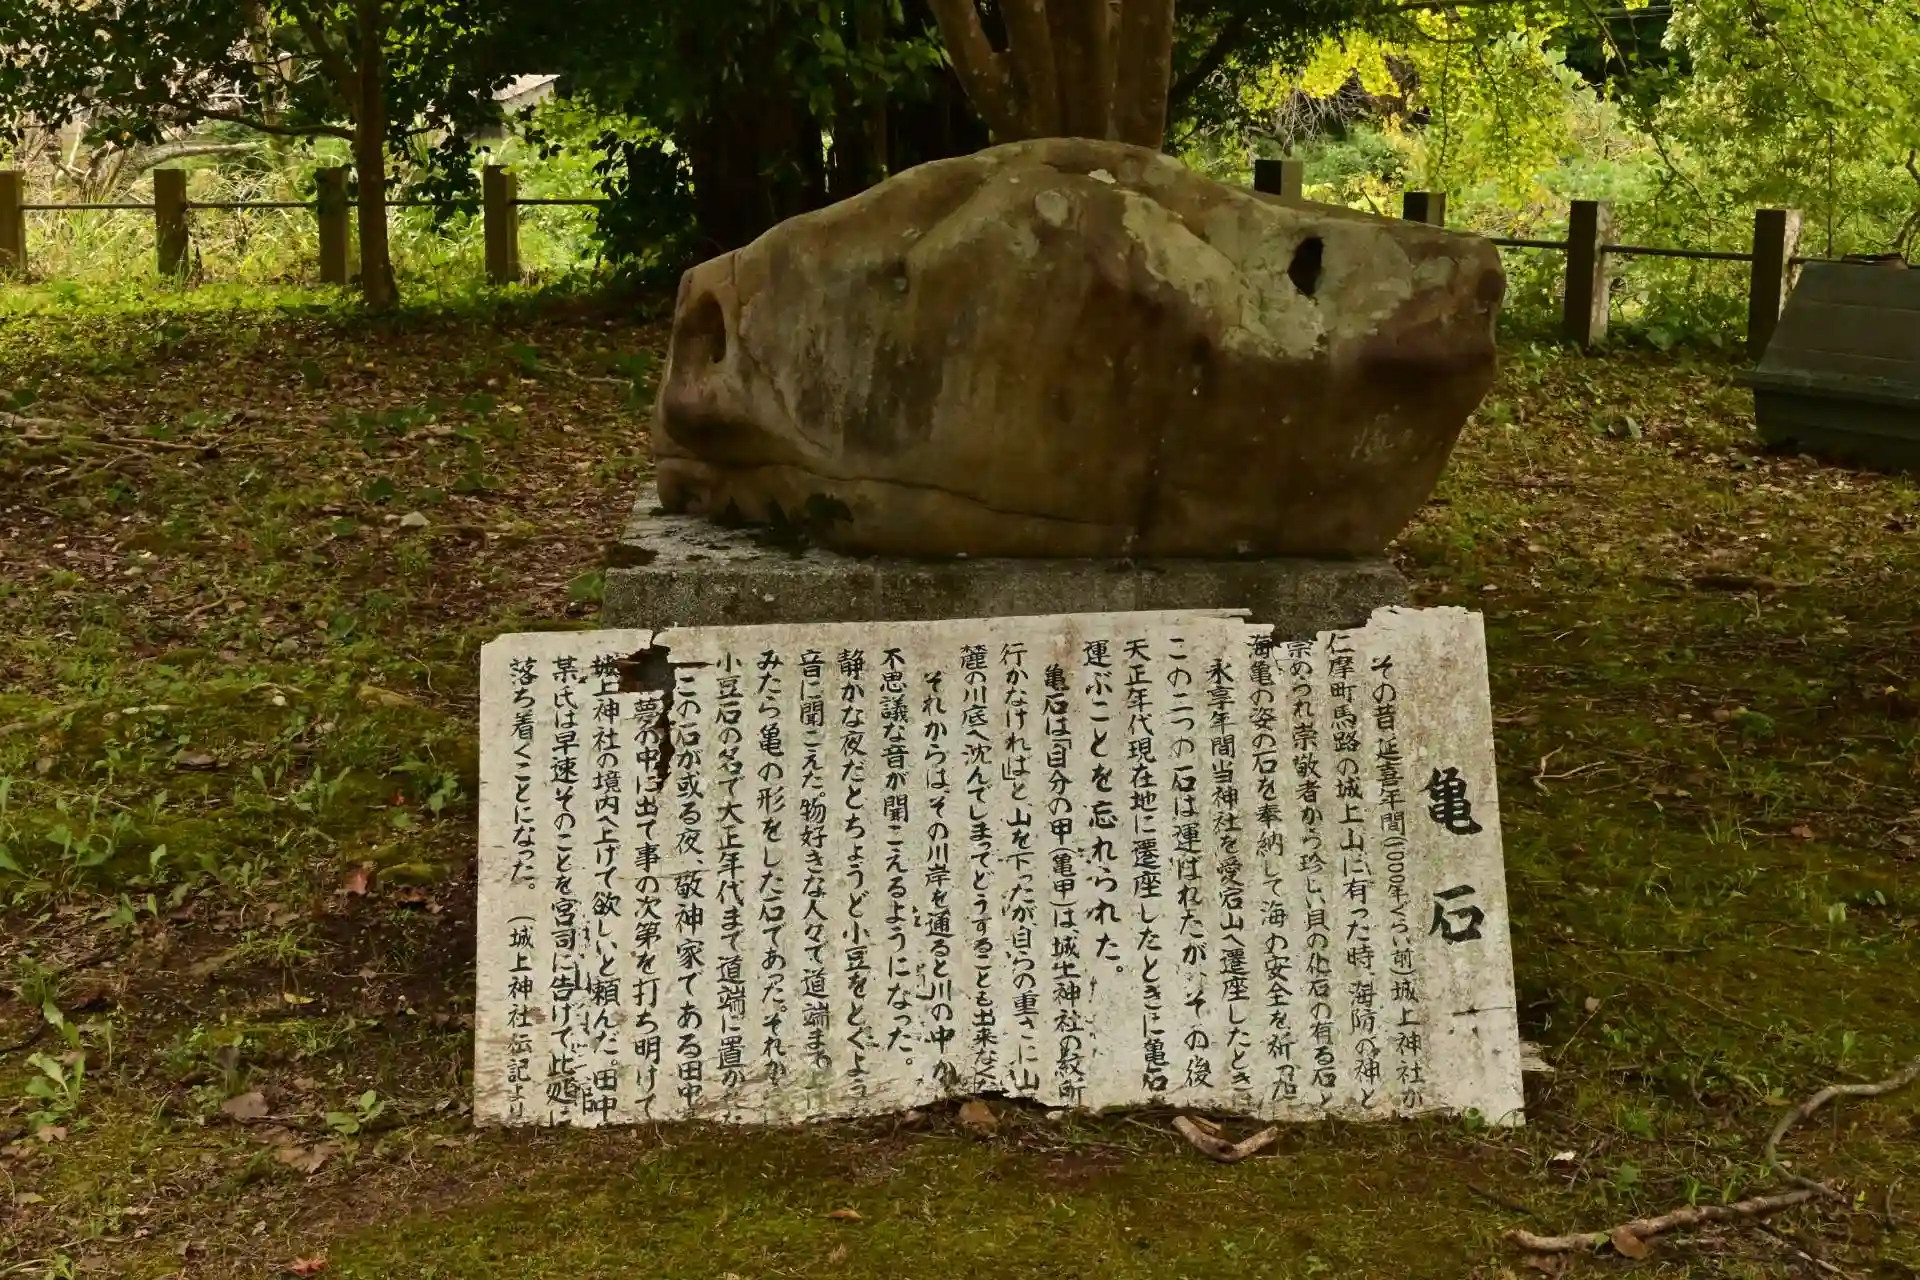 亀石
その昔延喜年間(1000年ぐらい前)城上神社が
仁摩町馬路の城上山に有った時、海防の神と
崇められ崇敬者から珍しい貝の化石の有る石と
海亀の姿の石を奉納して海の安全を祈った
永享年間当神社を愛宕山へ遷座したときは
この二つの石は運ばれたが、その後
天正年代現在地に遷座したときに亀石
運ぶことを忘れられた。
亀石は「自分の甲(亀甲)は、城上神社の紋所
行かなければ」と、山を下ったが自らの重さに山
麓の川底へ沈んでしまってどうすることも出来なくな
それからは、その川岸を通ると川の中か
不思議な音が聞こえるようになった。
静かな夜だとちょうど小豆をとぐよう
音に聞こえた。物好きな人々で道端まで
みたら亀の形をした石であった。それか
小豆石の名で大正年代まで道端に置かた
この石が或る夜、敬神家である田中
夢の中に出て事の次第を打ち明けて
城上神社の境内へ上げて欲しいと頼んだ。田中
某氏は早速そのことを宮司に告げて此処に
落ち着くことになった。(城上神社伝記より